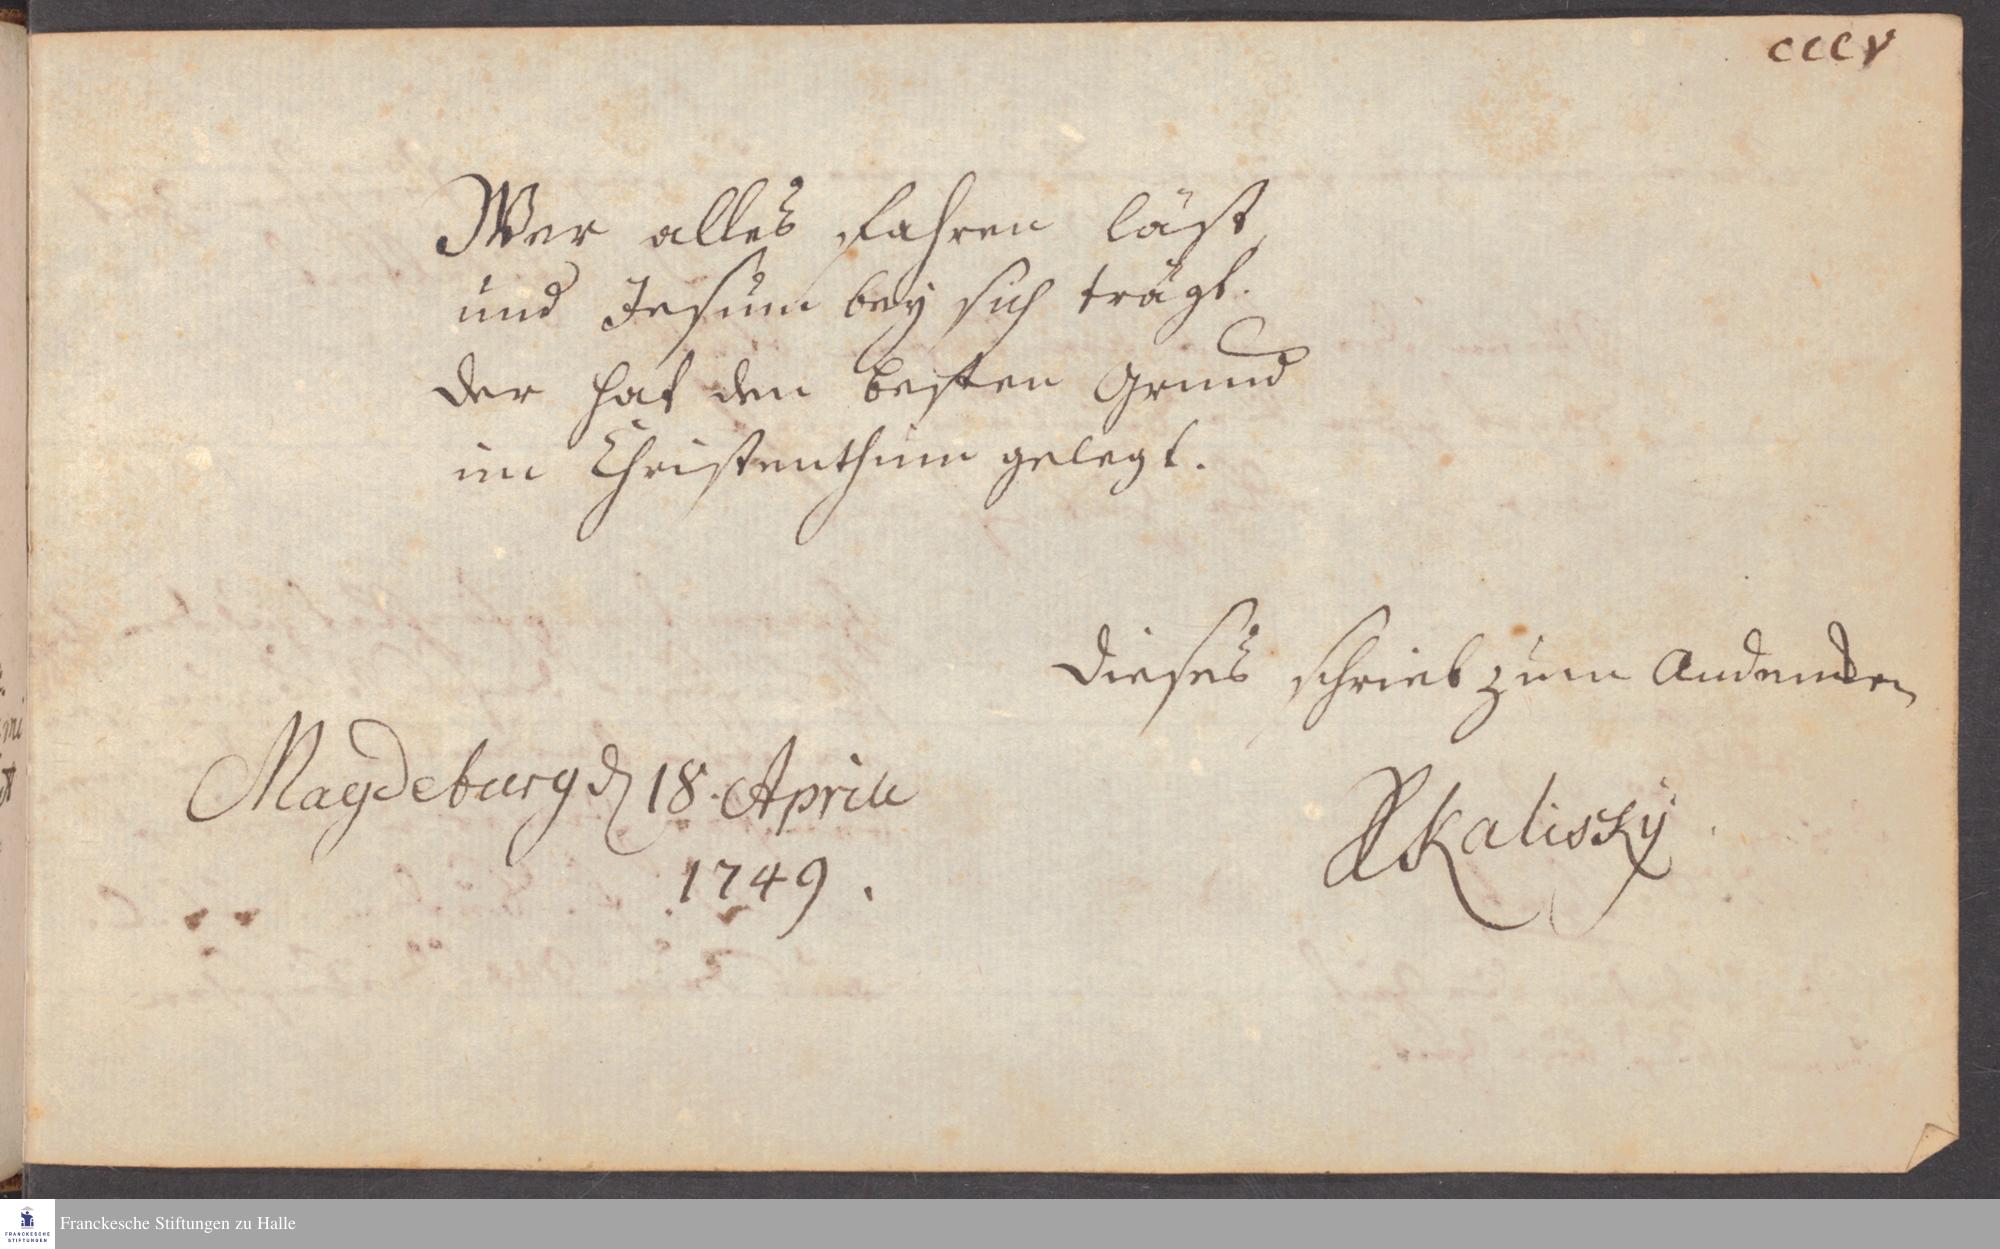 CCCV
Wer alles fahren läst,
und Jesum bey sich trägt.
der hat den besten Grund
im Christenthum gelegt.
Dieses schrieb zum Andencken
Magdeburg d 18. April
1749.
Kalisky
Franckesche Stiftungen zu Halle
FRANCKESCHE
STIFTUNGEN